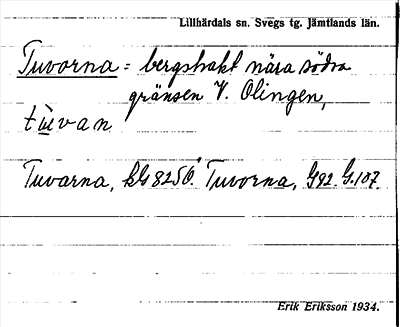 Lillhärdals sn. Svegs tg. Jämtlands län.
Tuvorna = bergstrakt nära södra
gränsen V. Olingen,
Tuvarna, Tuvorna, G92. G.107.
Erik Eriksson 1934.